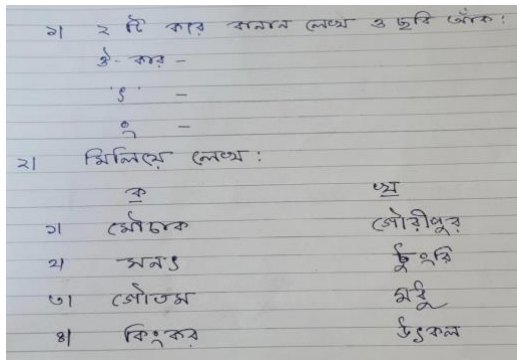 ১। ২ টি করে বানান লেখ ও ছবি আঁক:
ঔ- কার -
'ৎ' -
ং -
২। মিলিয়ে লেখ:
ক খ
১। মৌচাক গৌরীপুর
২। সনৎ ঠুংরি
৩। গৌতম মধু
৪। কিংকর উৎকল